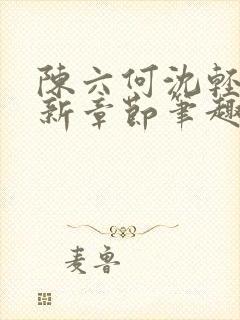 陳六何沈輕
新章節筆趣
麦魯